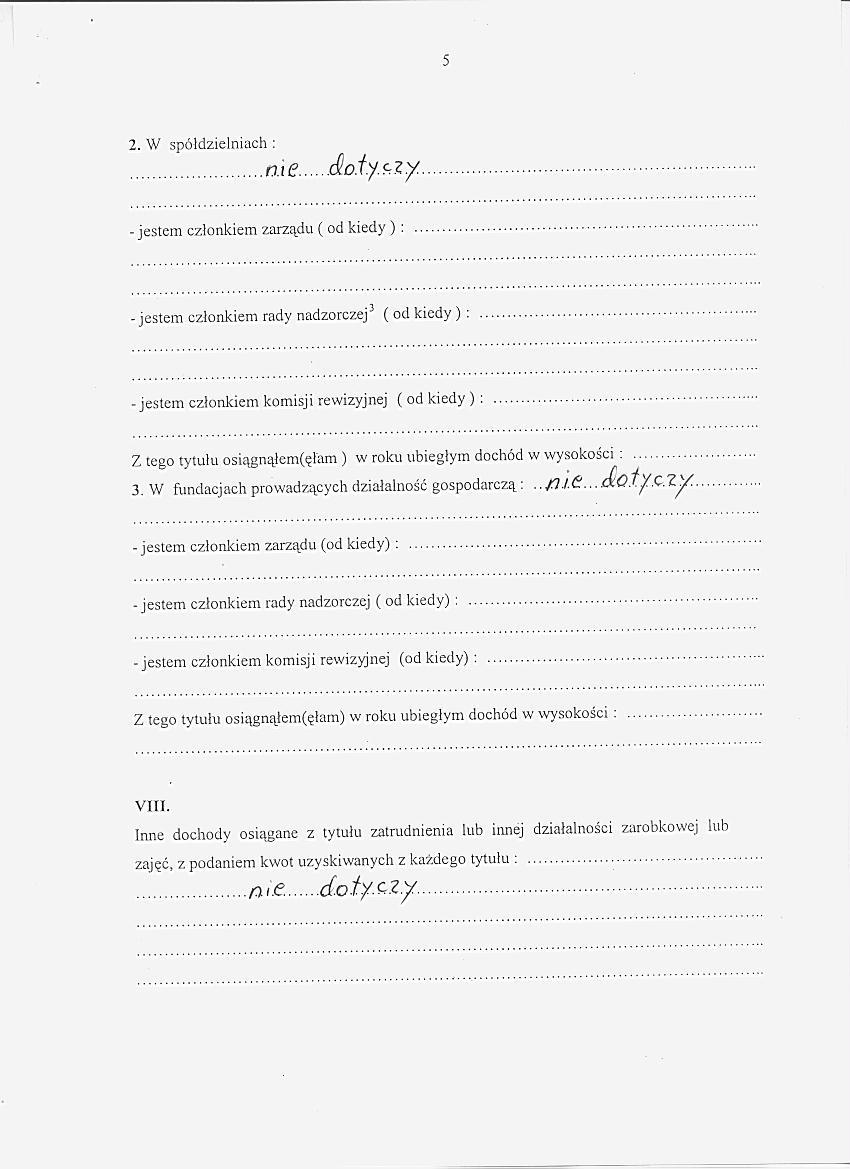 5
2. W spółdzielniach :
nie dotyczy
- jestem członkiem zarządu ( od kiedy ) :
- jestem członkiem rady nadzorczej³ ( od kiedy ) :
- jestem członkiem komisji rewizyjnej ( od kiedy ) :
Z tego tytułu osiągnąłem(ęłam ) w roku ubiegłym dochód w wysokości :
3. W fundacjach prowadzących działalność gospodarczą : nie dotyczy
- jestem członkiem zarządu (od kiedy) :
- jestem członkiem rady nadzorczej ( od kiedy) :
- jestem członkiem komisji rewizyjnej (od kiedy) :
Z tego tytułu osiągnąłem(ęłam) w roku ubiegłym dochód w wysokości :
VIII.
Inne dochody osiągane z tytułu zatrudnienia lub innej działalności zarobkowej lub
zajęć, z podaniem kwot uzyskiwanych z każdego tytułu :
nie dotyczy